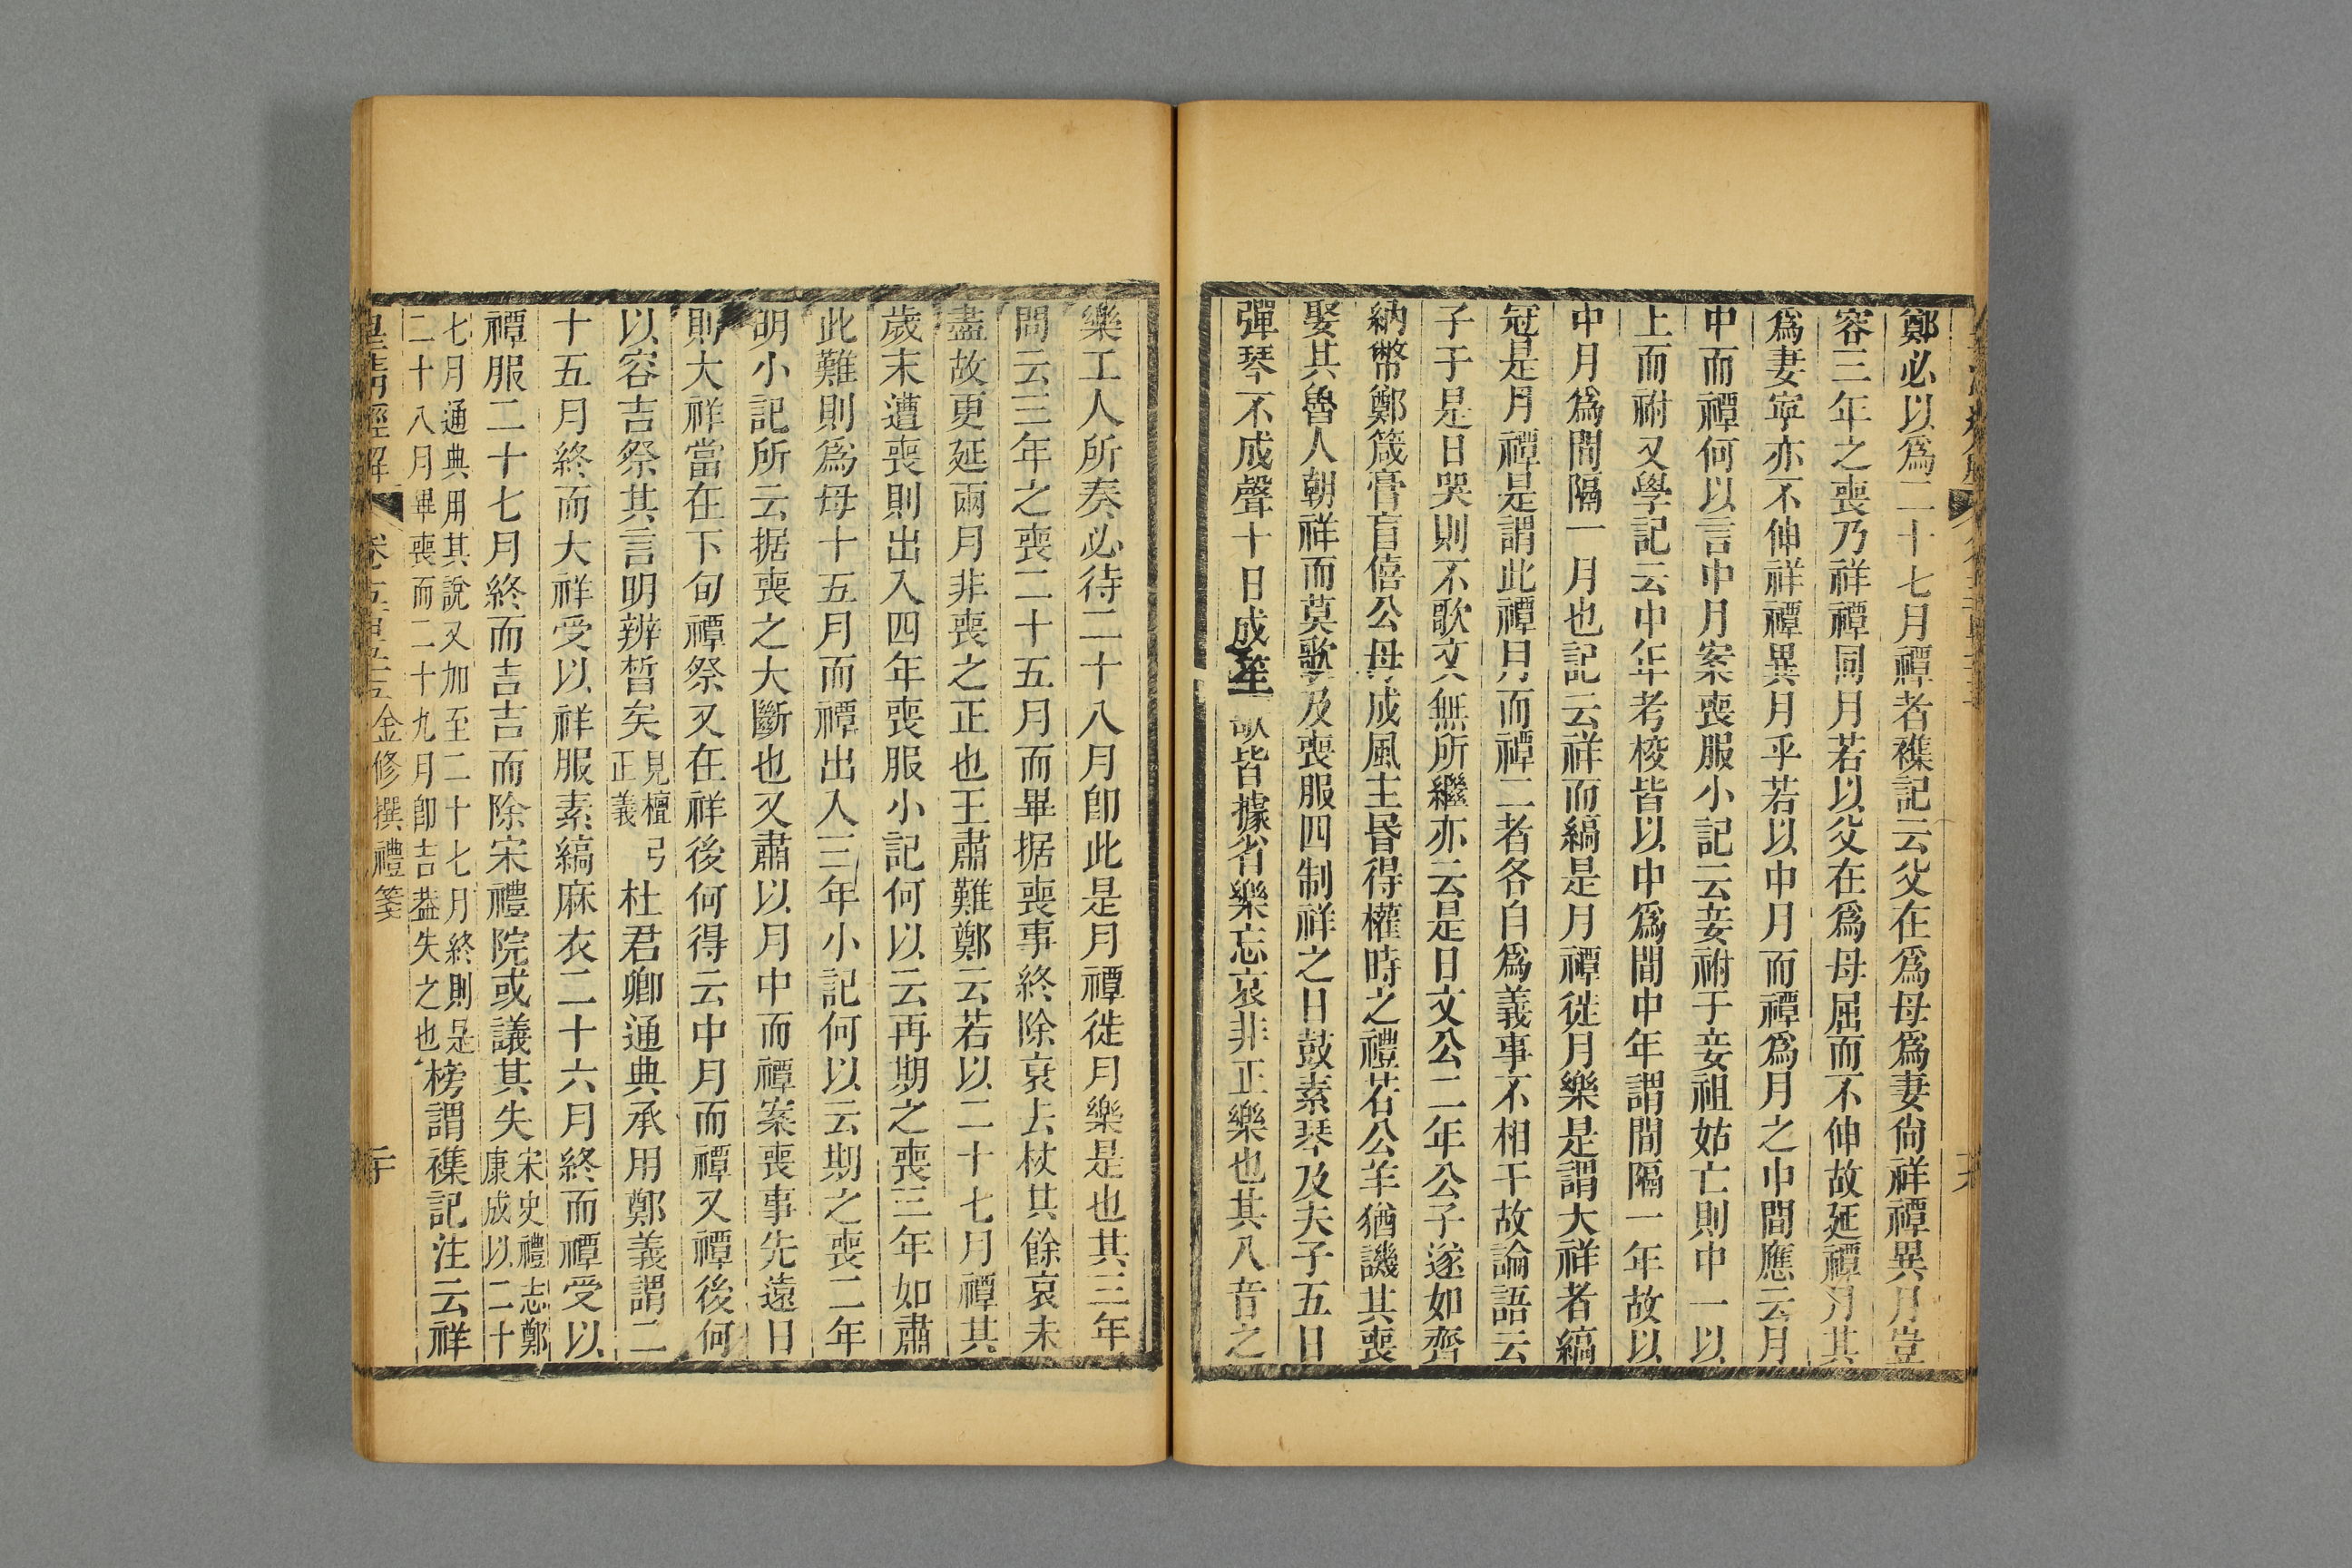 鄭必以爲二十七月禫者襍記云父在爲母爲妻尙祥禫異月豈
容三年之喪乃祥禫同月若以父在爲母屈而不伸故延禫月其
爲妻寧亦不伸祥禫異月乎若以中月而禫爲月之中間應云月
中而禫何以言中月案喪服小記云妾祔于妾祖姑亡則中一以
上而祔又學記云中年考校皆以中爲間中年謂間隔一年故以
中月爲間隔一月也記云祥而縞是月禫徙月樂是謂大祥者縞
冠是月禫是謂此禫月而禫二者各自爲義事不相干故論語云
子于是日哭則不歌文無所繼亦云是日文公二年公子遂如齊
納幣鄭箴膏肓僖公母成風主昬得權時之禮若公羊猶譏其喪
娶其魯人朝祥而莫歌及喪服四制祥之日鼓素琴及夫子五日
彈琴不成聲十日成笙歌皆據省樂忘哀非正樂也其八音之
樂工人所奏必待二十八月卽此是月禫徙月樂是也其三年
問云三年之喪二十五月而畢据喪事終除衰去杖其餘哀未
盡故更延兩月非喪之正也王肅難鄭云若以二十七月禫其
歲末遭喪則出入四年喪服小記何以云再期之喪三年如肅
此難則爲母十五月而禫出入三年小記何以云期之喪二年
明小記所云据喪之大斷也又肅以月中而禫案喪事先遠日
則大祥當在下旬禫祭又在祥後何得云中月而禫又禫後何
以容吉祭其言明辨晳矣見檀弓正義杜君卿通典承用鄭義謂二
十五月終而大祥受以祥服素縞麻衣二十六月終而禫受以
禫服二十七月終而吉吉而除宋禮院或議其失宋史禮志鄭康成以二十
七月通典用其說又加至二十七月終則是二十八月畢喪而二十九月卽吉葢失之也榜謂襍記注云祥
皇淸經解 卷五百五十五 金修撰禮箋 二十